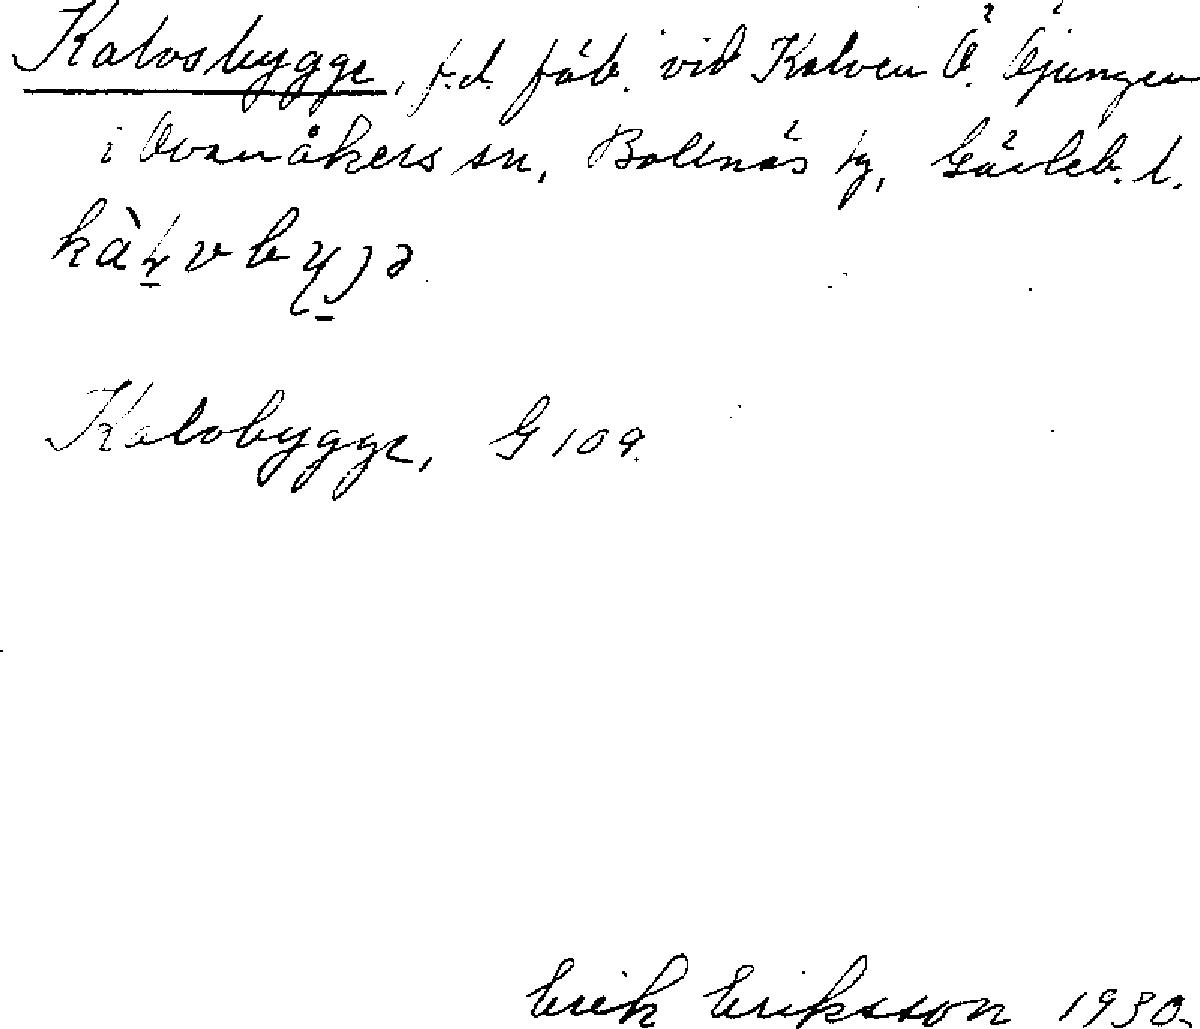 Kalvsbygge, f.d. fäb. vid Kalven Ö. Öjungen
i Ovanåkers sn, Bollnäs tg, Gävleb. l.
Kalvbygge, G 109.
Erik Eriksson 1930.